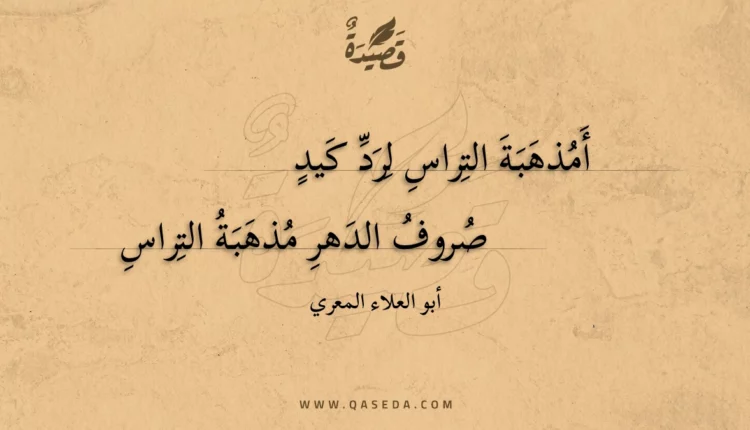 قَصِيدَةٌ
أَمُذهَبَةَ التِراسِ لِرَدِّ كَيدٍ
صُروفُ الدَهرِ مُذهَبَةُ التِراسِ
أبو العلاء المعري
WWW.QASEDA.COM